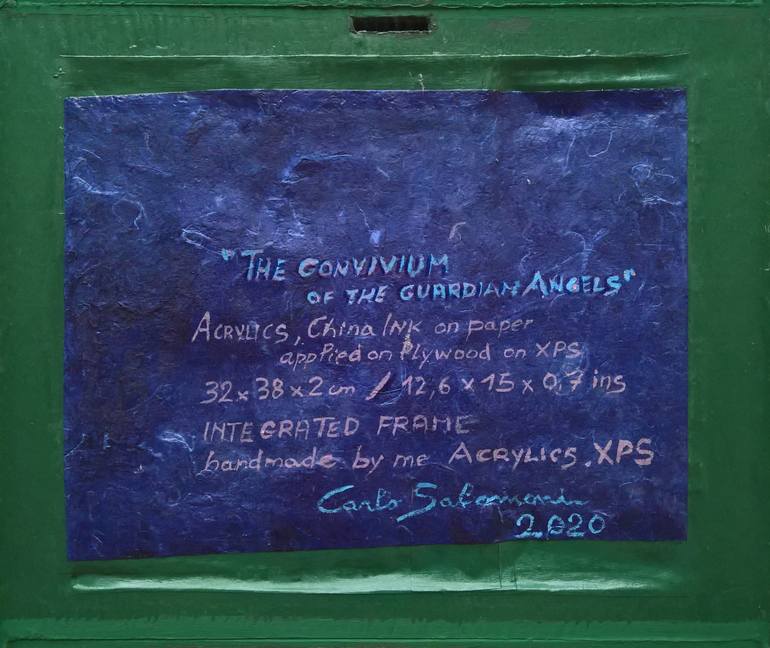 "THE CONVIVIUM
OF THE GUARDIAN ANGELS"
ACRYLICS, China INK on paper
applied on Plywood on XPS
32 x 38 x 2 cm / 12,6 x 15 x 0,7 ins
INTEGRATED FRAME
handmade by me ACRYLICS. XPS
Carlo Salomoni
2020